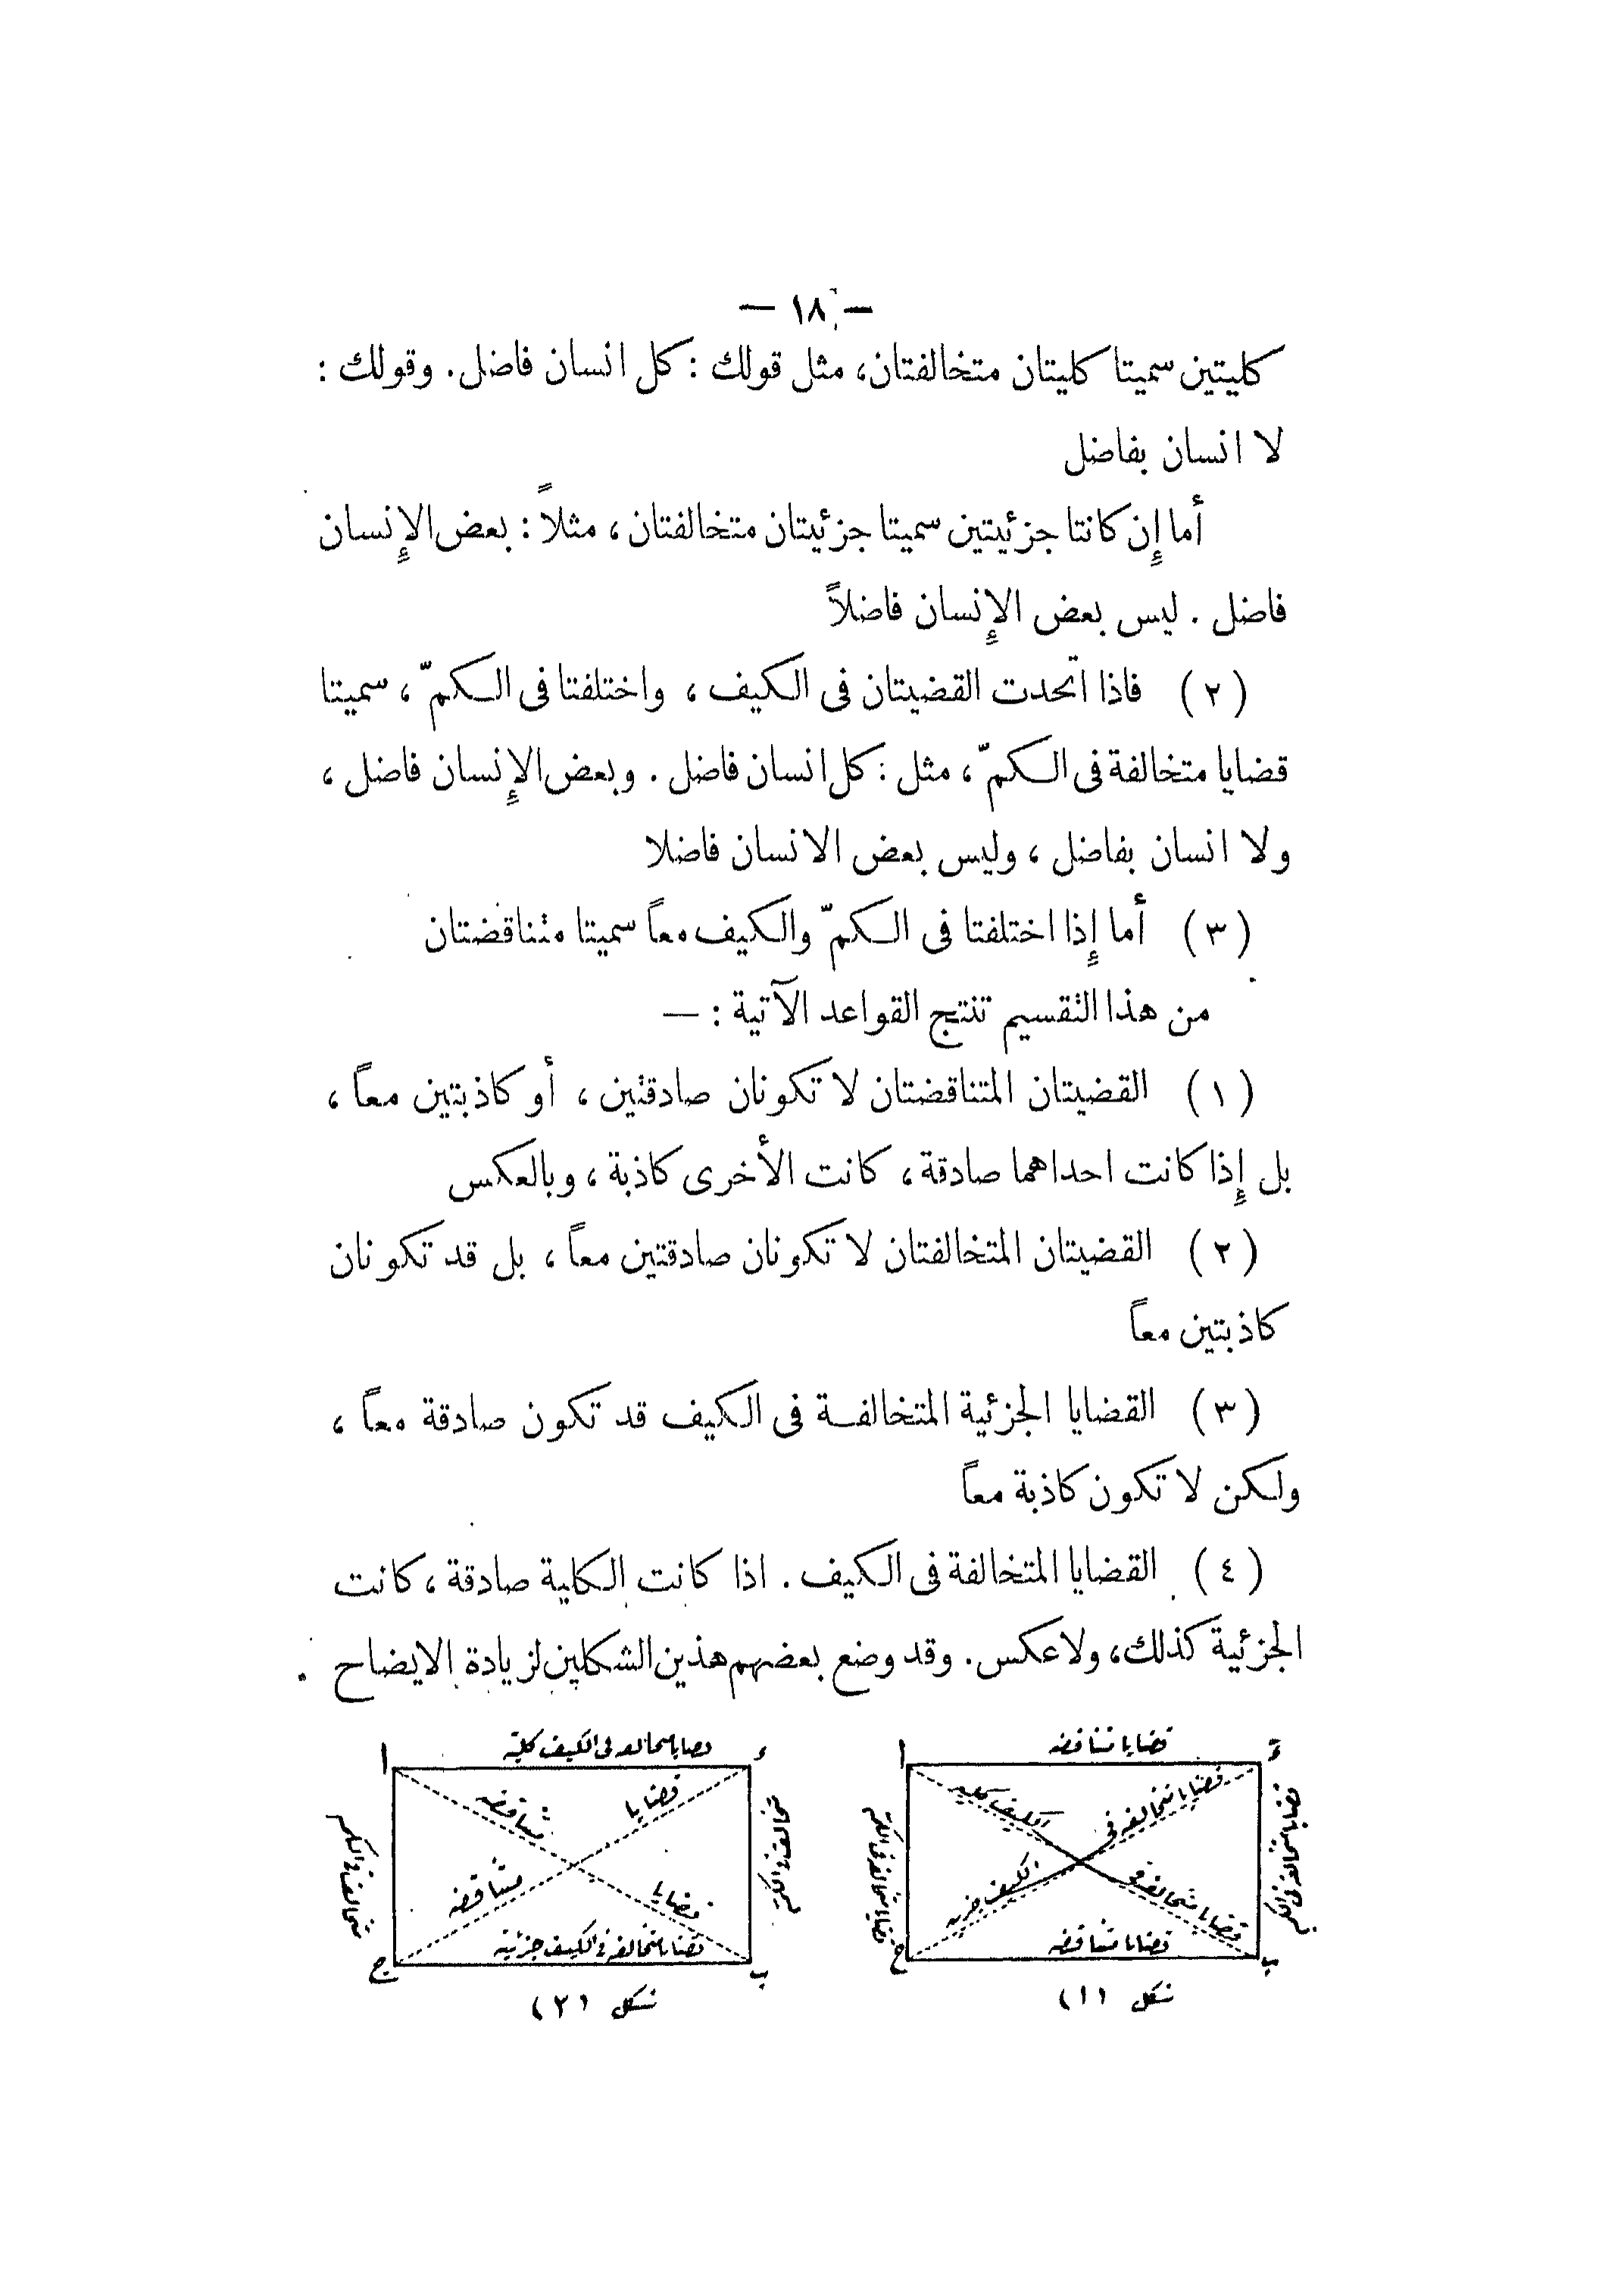 — ١٨ —
كليتين سميتا كليتان متخالفتان، مثل قولك : كل انسان فاضل. وقولك :
لا انسان بفاضل
أما إِن كانتا جزئيتين سميتا جزئيتان متخالفتان ، مثلاً : بعض الإِنسان
فاضل . ليس بعض الإِنسان فاضلاً
(٢) فاذا اتحدت القضيتان فى الكيف ، واختلفتا فى الكمّ ، سميتا
قضايا متخالفة فى الكمّ ، مثل : كل انسان فاضل . وبعض الإِنسان فاضل ،
ولا انسان بفاضل ، وليس بعض الانسان فاضلا
(٣) أما إِذا اختلفتا فى الكمّ والكيف معاً سميتا متناقضتان
من هذا التقسيم تنتج القواعد الآتية : —
(١) القضيتان المتناقضتان لا تكونان صادقتين ، أو كاذبتين معاً ،
بل إِذا كانت احداهما صادقة ، كانت الأخرى كاذبة ، وبالعكس
(٢) القضيتان المتخالفتان لا تكونان صادقتين معاً ، بل قد تكونان
كاذبتين معاً
(٣) القضايا الجزئية المتخالفة فى الكيف قد تكون صادقة معاً ،
ولكن لا تكون كاذبة معاً
(٤) القضايا المتخالفة فى الكيف . اذا كانت الكلية صادقة ، كانت
الجزئية كذلك ، ولا عكس . وقد وضع بعضهم هذين الشكلين لزيادة الايضاح .
قضايا متناقضه
ا
قضايا متخالفه فى
الكيف جزيه
قضايا متخالفه
الكيف كليه
قضايا متخالفه فى الكم
ب
ج
قضايا متناقضه
شكل (١)
قضايا متخالفه فى الكيف كليّة
ا
ء
قضايا
متناقضه
متناقضه
قضايا
متخالفه فى الكم
قضايا متخالفه فى الكيف جزئية
ب
ج
شكل (٢)